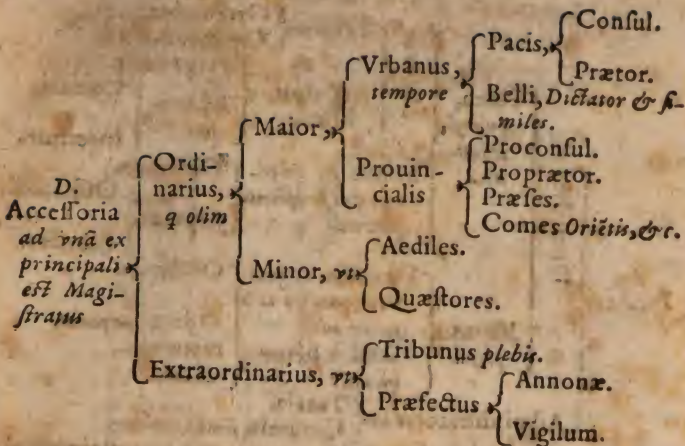 D.
Accessoria
ad vnā ex
principali
est Magi-
stratus
Ordi-
narius,
q olim
Maior,
Vrbanus,
tempore
Pacis,
Consul.
Prætor.
Belli, Dictator & si-
miles.
Prouin-
cialis
Proconsul.
Proprætor.
Præses.
Comes Oriētis, & c.
Minor, vt
Aediles.
Quæstores.
Extraordinarius, vt
Tribunus plebis.
Præfectus
Annonæ.
Vigilum.